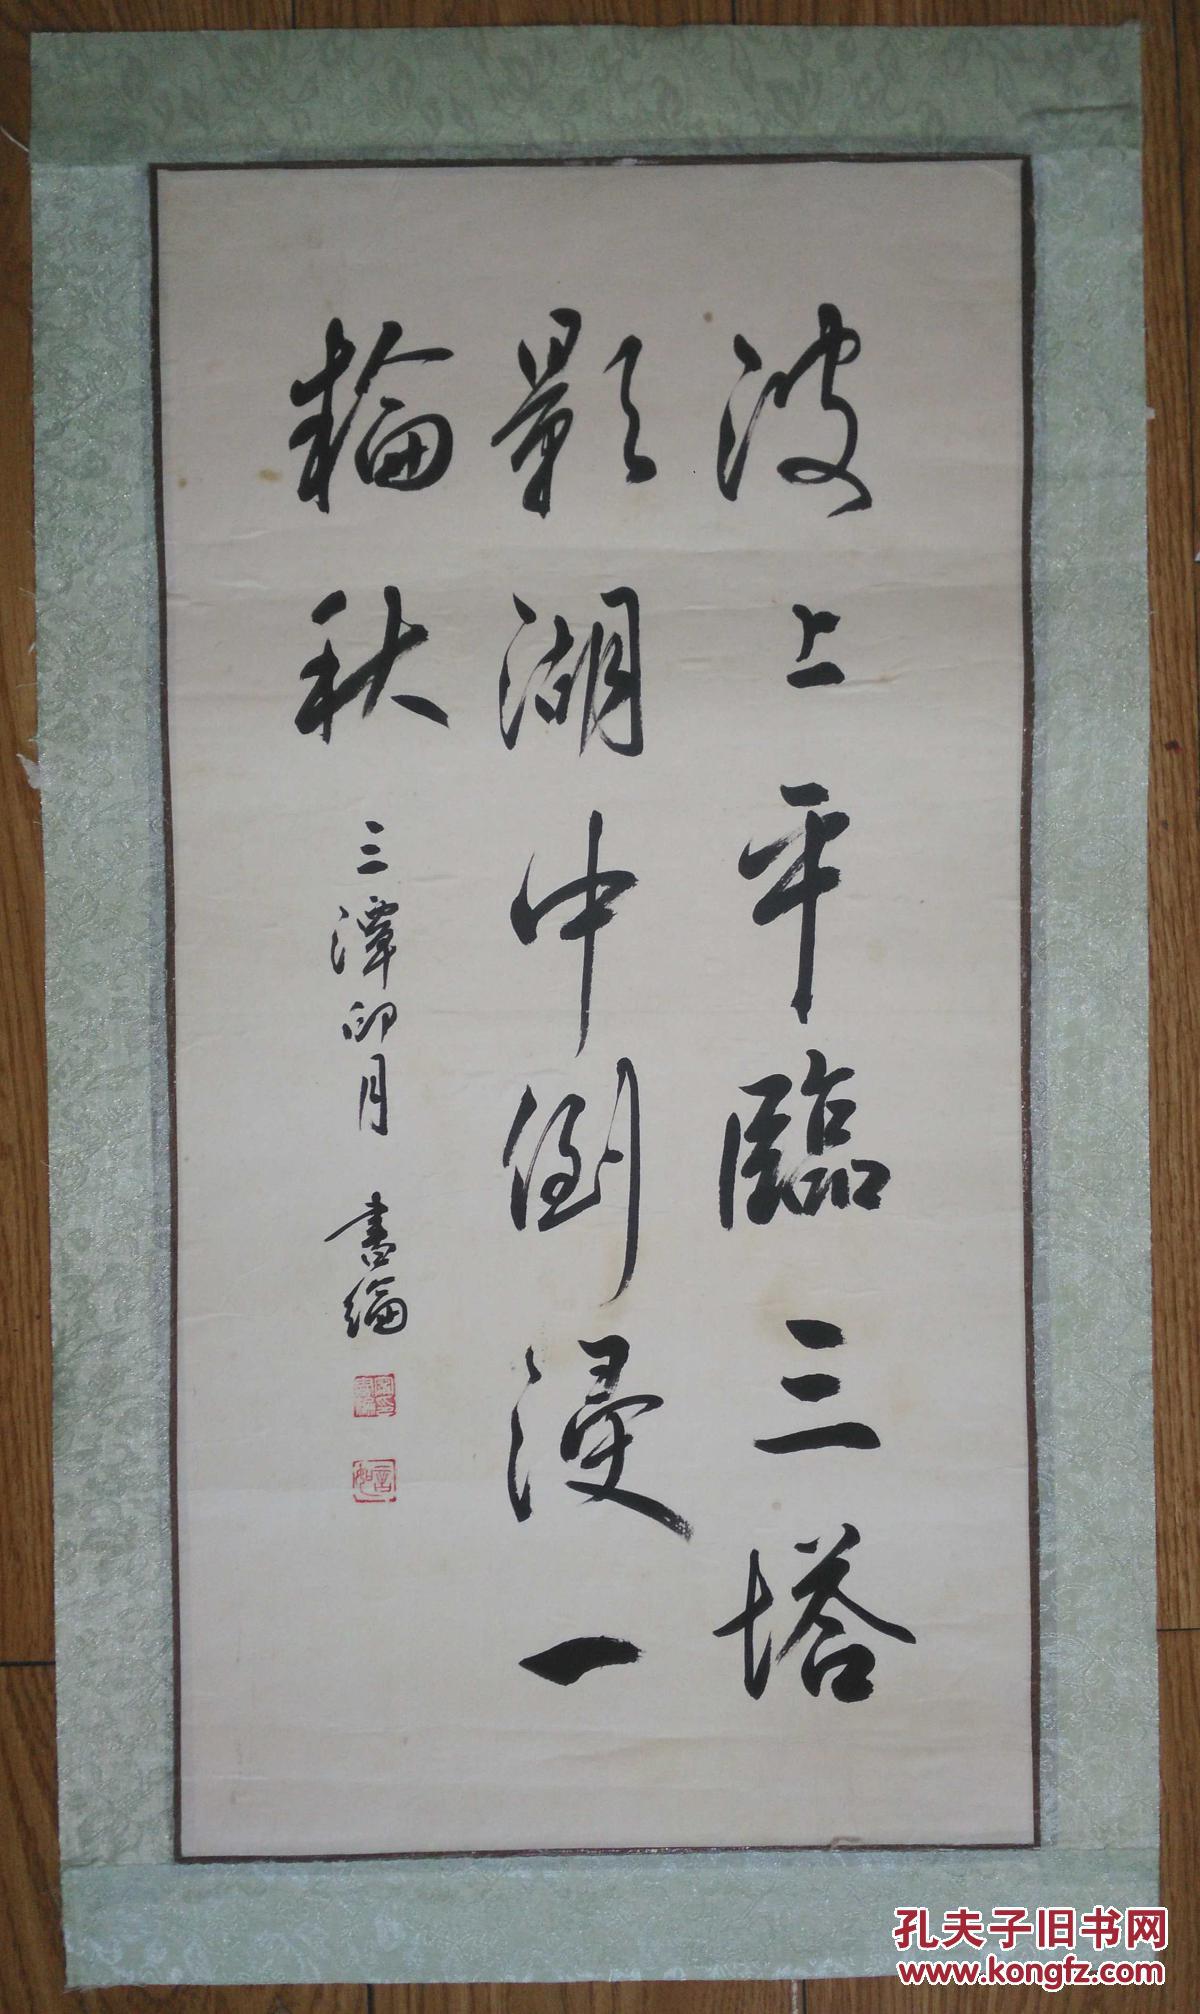 波上平臨三塔
影湖中倒浸一
輪秋
三潭印月 書綸
孔夫子旧书网
www.kongfz.com